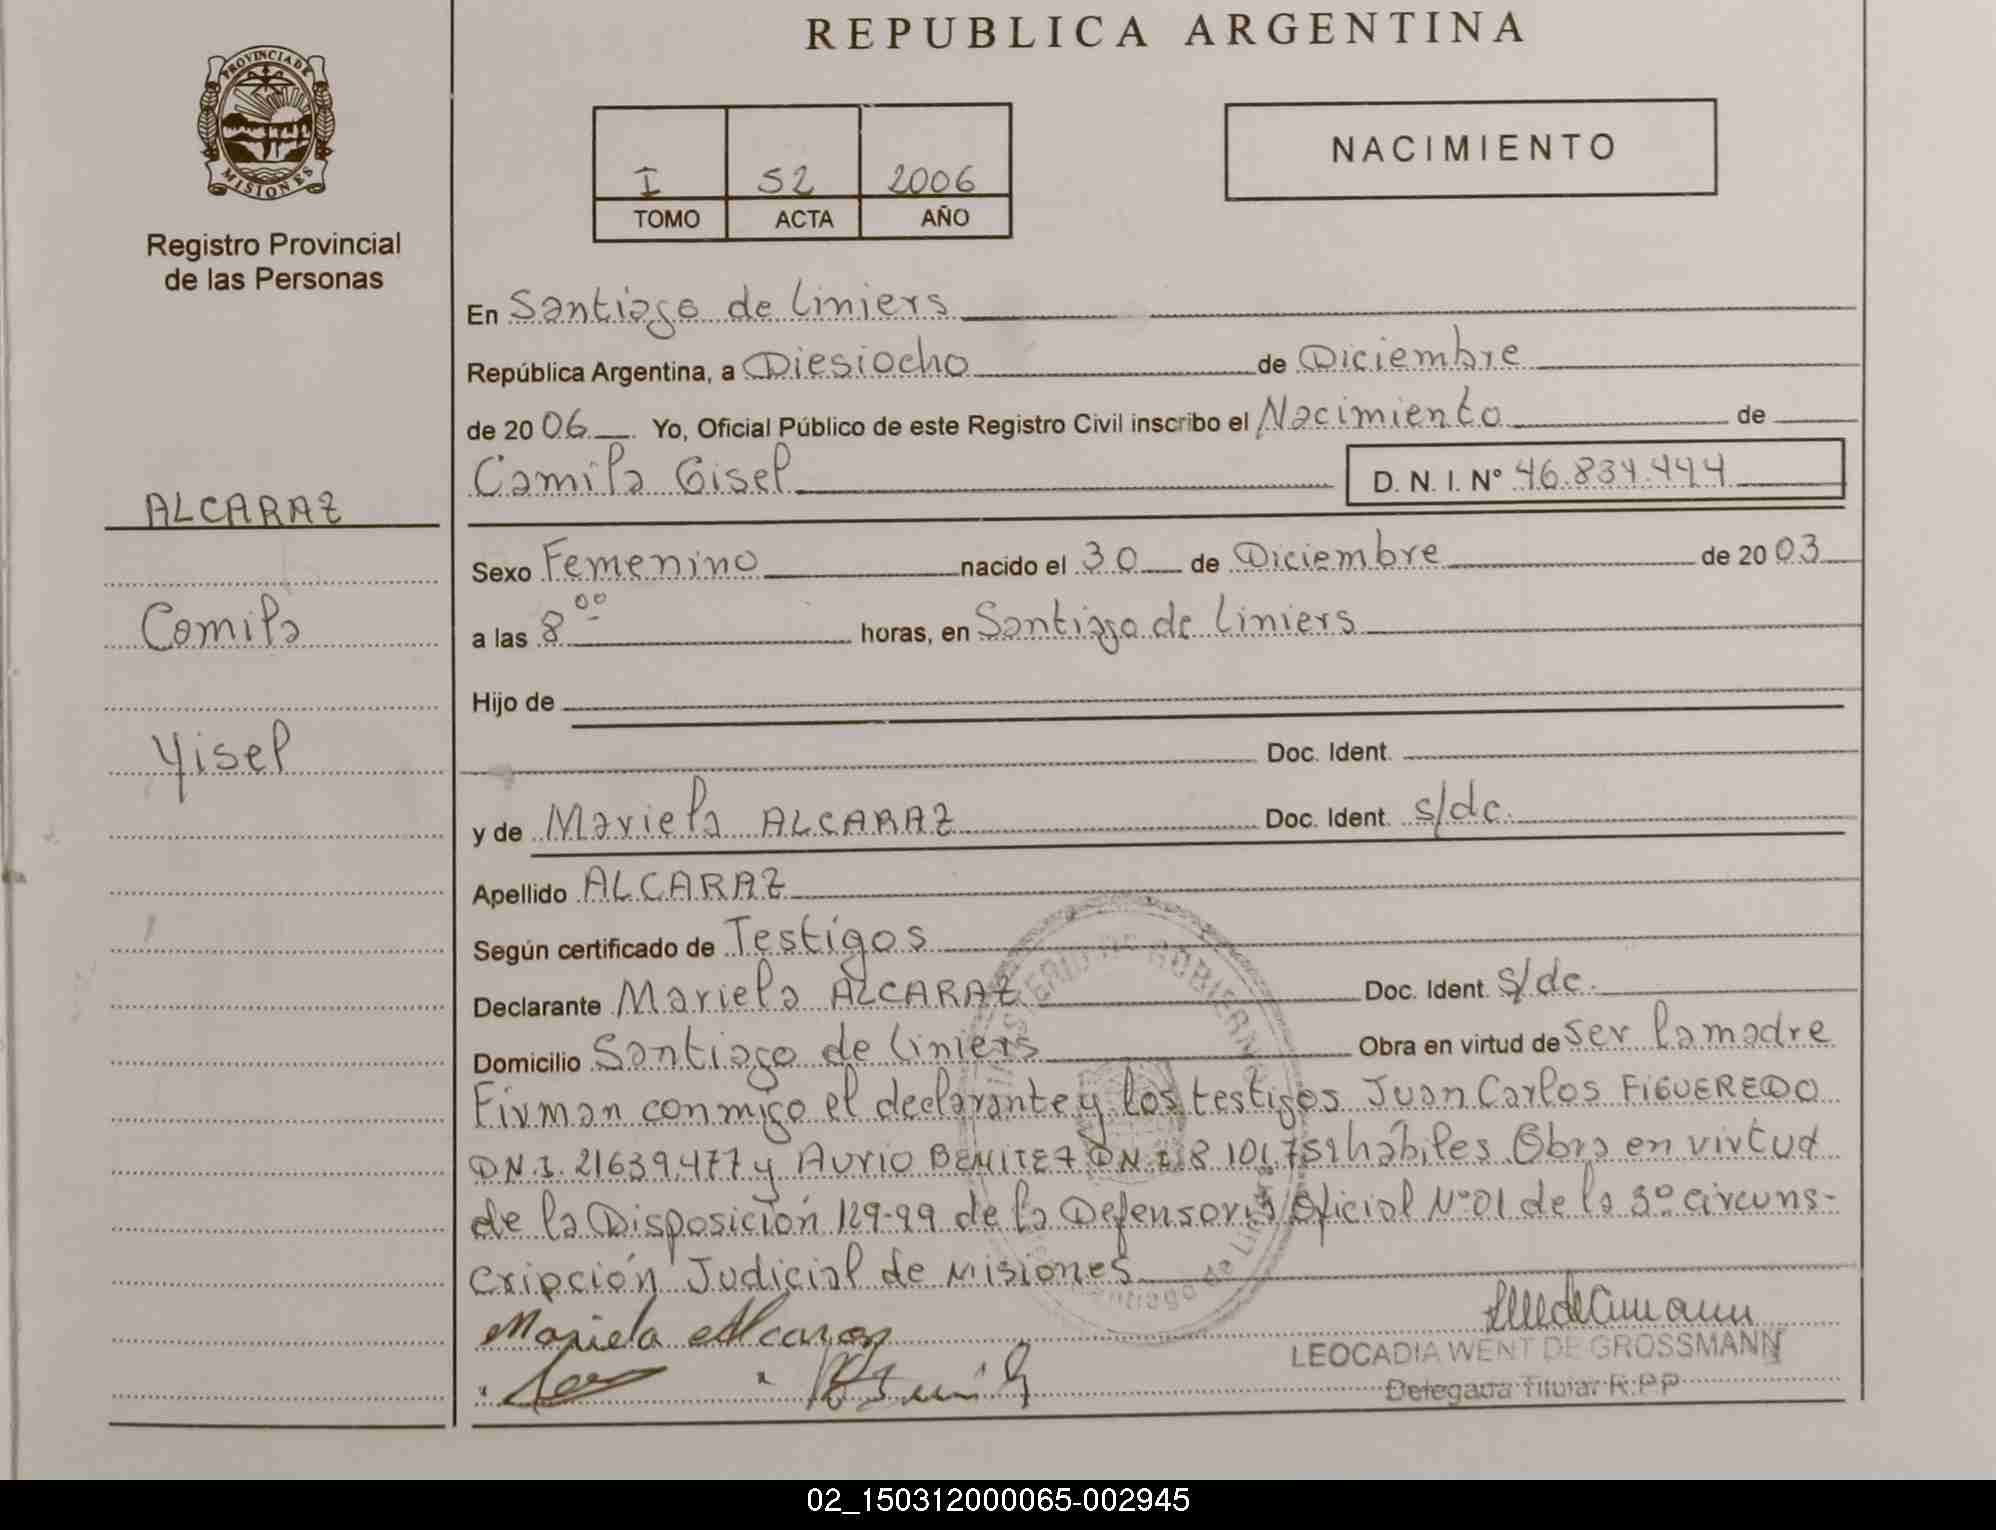 REPUBLICA ARGENTINA
PROVINCIA DE
MISIONES
Registro Provincial
de las Personas
I 52 2006
TOMO ACTA AÑO
NACIMIENTO
En Santiago de Liniers
República Argentina, a Diesiocho de Diciembre
de 2006 Yo, Oficial Público de este Registro Civil inscribo el Nacimiento de
Camila Gisel D. N. I. Nº 46.834.444
ALCARAZ
Camila
Yisel
Sexo Femenino nacido el 30 de Diciembre de 2003
a las 8 00 horas, en Santiago de Liniers
Hijo de
Doc. Ident.
y de Mariela ALCARAZ Doc. Ident. s/dc.
Apellido ALCARAZ
Según certificado de Testigos
Declarante Mariela ALCARAZ Doc. Ident. s/dc.
Domicilio Santiago de Liniers Obra en virtud de ser la madre
Firman conmigo el declarante y los testigos Juan Carlos FIGUEREDO
DNI. 21639.477 y Aurio BENITEZ DNI 8 101.752 hábiles Obra en virtud
de la Disposición 129-99 de la Defensoria Oficial Nº01 de la 3º circuns-
cripción Judicial de Misiones
Mariela Alcaraz
LEOCADIA WENT DE GROSSMANN
Delegada Titular R.P.P
02_150312000065-002945